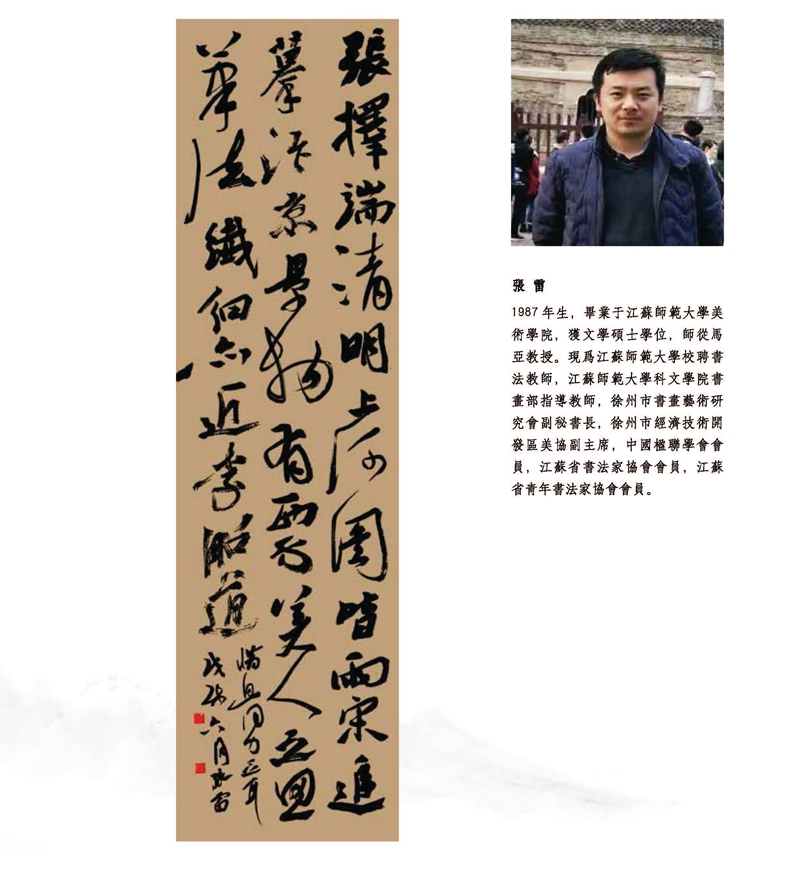 張擇端清明上河圖皆南宋追
摹汴京景物有西方美人之思
筆法纖細亦近李昭道
惜其骨力乏耳
戊戌六月張雷
張雷
1987年生，畢業于江蘇師範大學美
術學院，獲文學碩士學位，師從馬
亞教授。現爲江蘇師範大學校聘書
法教師，江蘇師範大學科文學院書
畫部指導教師，徐州市書畫藝術研
究會副秘書長，徐州市經濟技術開
發區美協副主席，中國楹聯學會會
員，江蘇省書法家協會會員，江蘇
省青年書法家協會會員。